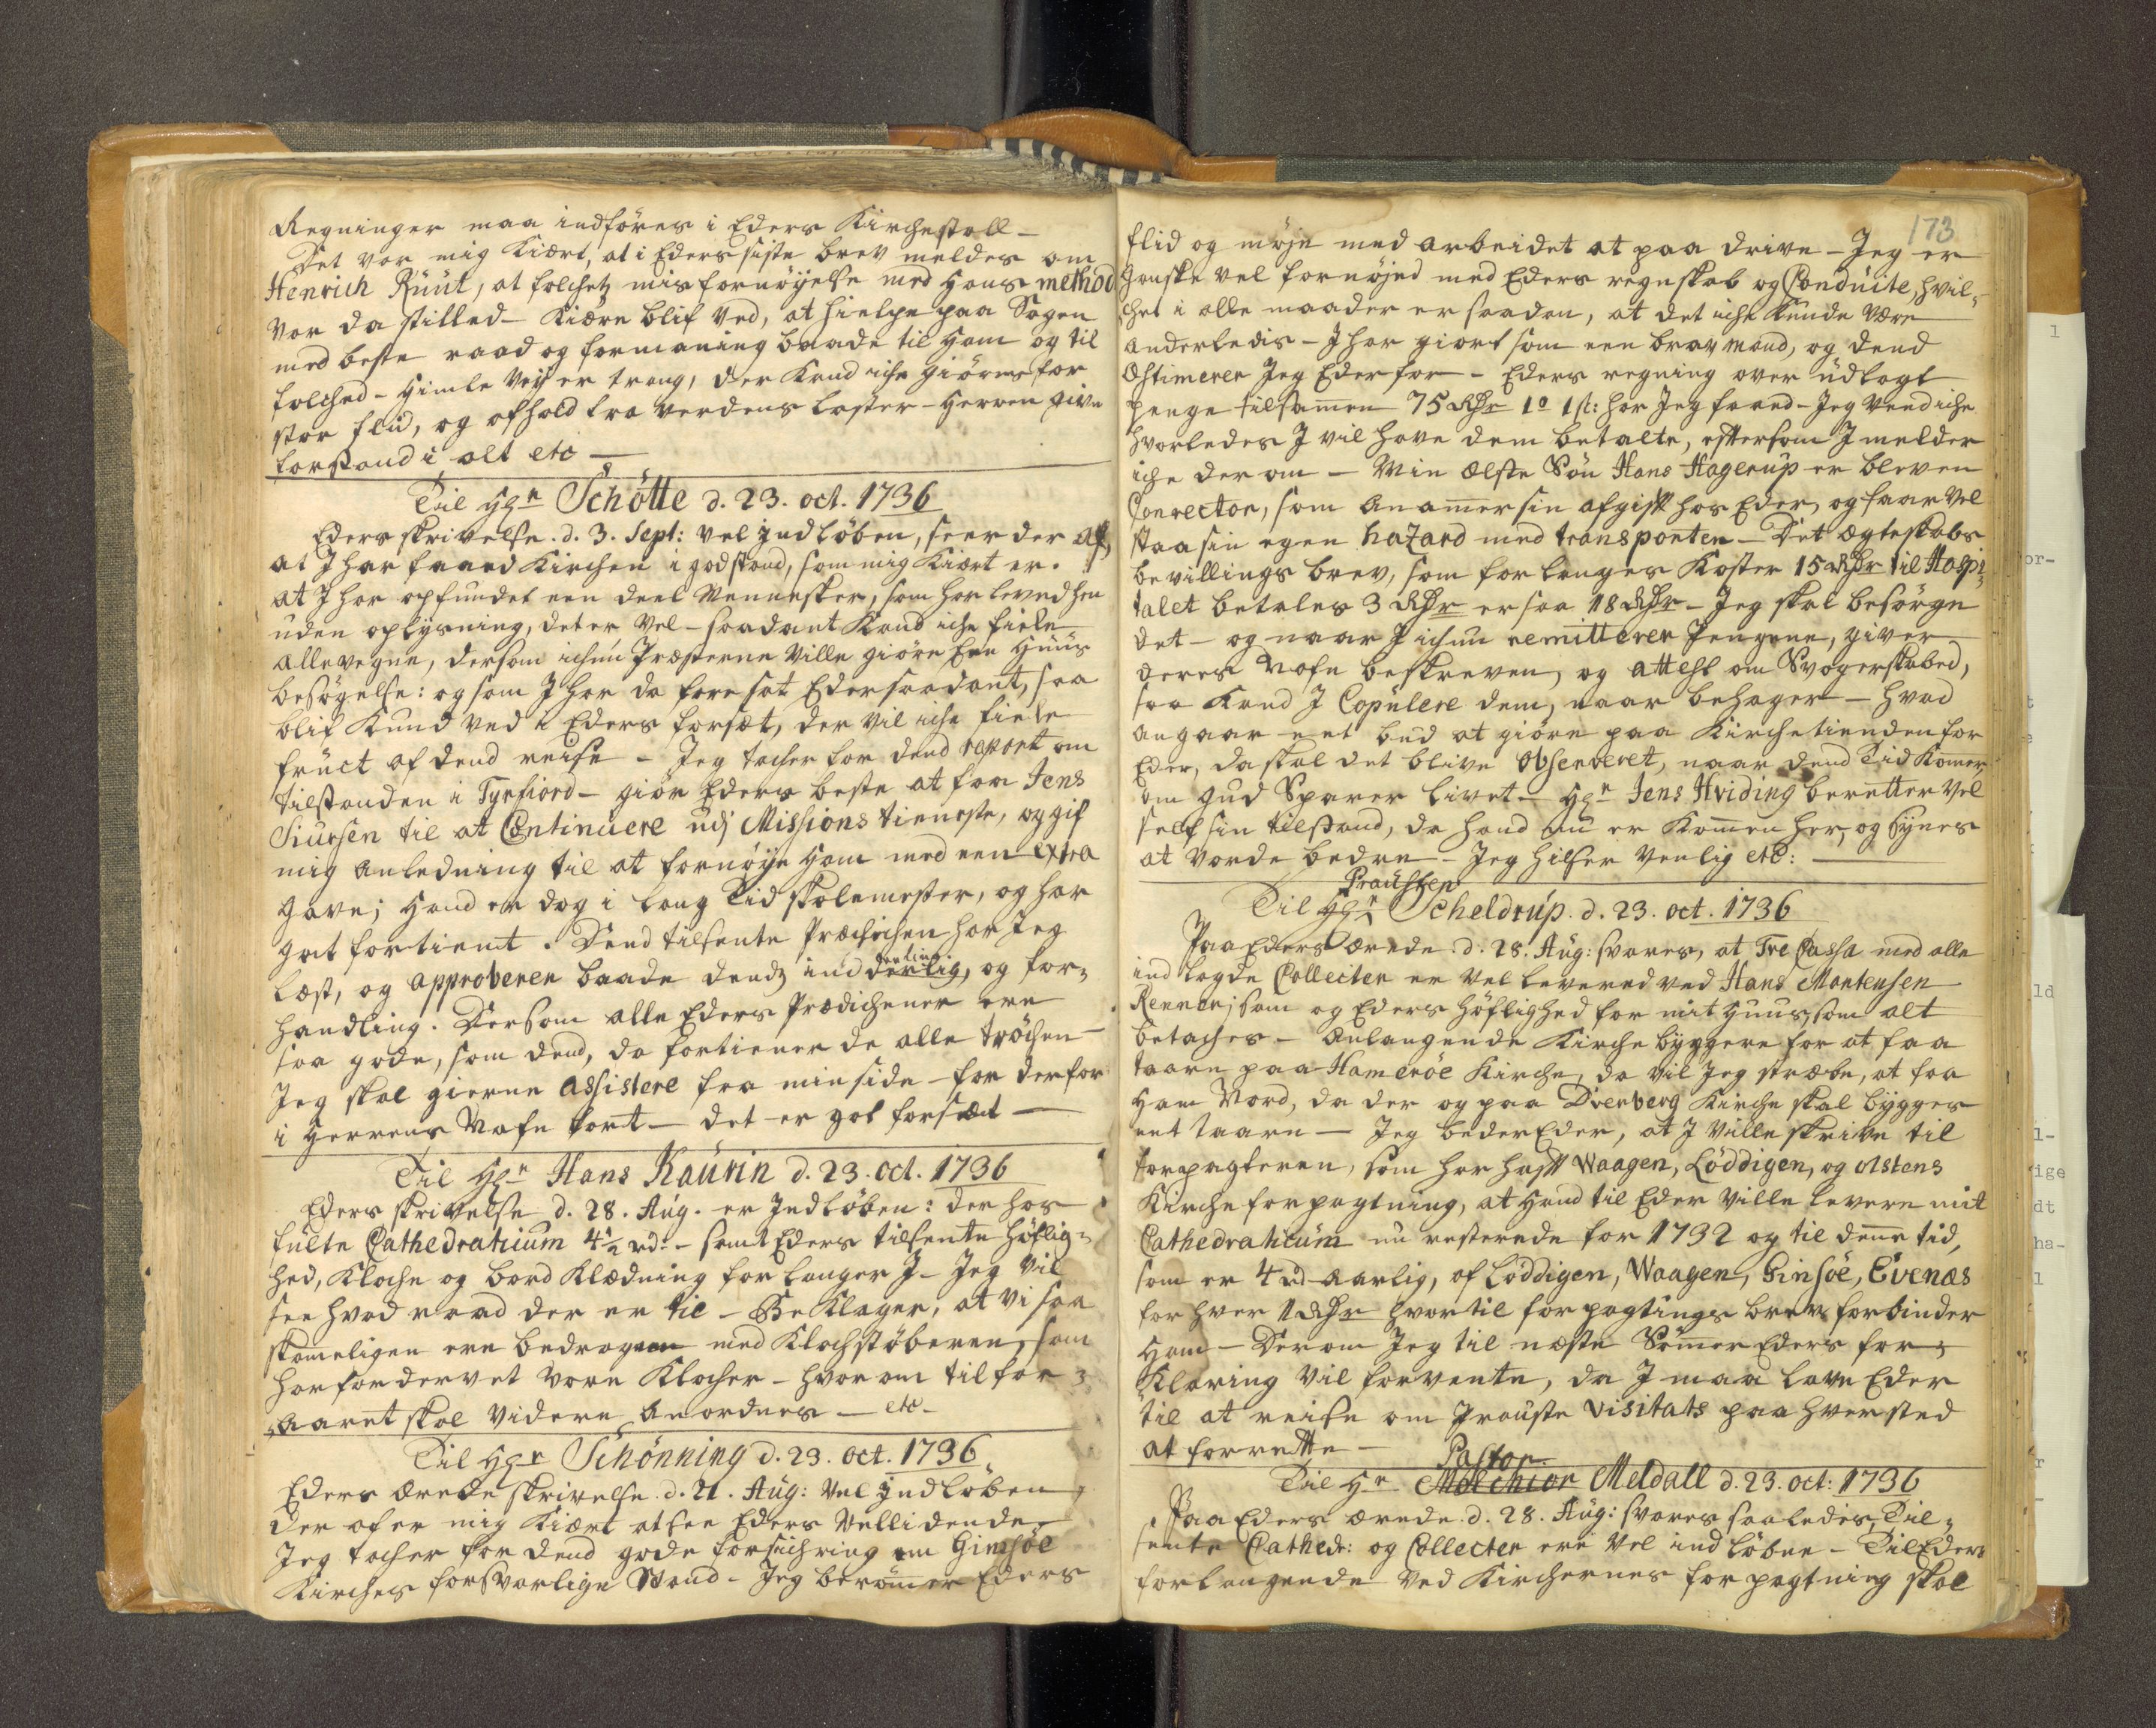 Regninger maa indføres i Eders Kirchestoll –
Det var mig Kiært, at i Eders siste brev meldes om
Henrich Ruut, at folchetz misfornøyelse med hans method
var da stilled – Kiære blif ved, at hielpe paa Sagen
med beste raad og formaning baade til ham og til
folched – Himle Vejs er trang, der Kand iche giøres for
stor flid, og afhold fra verdens laster – Herren give
forstand i alt etc –
Til Hgr Schötte d. 23. oct. 1736
Eders skrivelse d. 3. Sept: vel indløben, seer der af,
at I har faaed Kirchen i god stand, som mig Kiært er.
at I har opfundet een deel Mennesker, som har leved hen
uden oplysning, det er vel – saadant Kand iche feile
allevegne, dersom ichun Præsterne ville giøre Een Huus
besøgelse: og som I har da foresat Eder saadant, saa
blif Kund ved i Eders forsæt, der vil iche feile
fruct af dend reise – Jeg tacher for dend report om
tilstanden i Tyrfiord – giør Eders beste at faa Jens
Siursen til at Continuere udj Missions tieneste, og gif
mig anledning til at fornøye ham med een extra
gave; Hand er dog i lang Tid skolemester, og har
got fortient. Dend tilsente Prædichen har Jeg
læst, og approberer baade dendz inderlig
derlig, og for,
handling. Dersom alle Eders Prædichener ere
saa gode, som dend, da fortiener de alle trøchen –
Jeg skal gierne assistere fra min side – far derfor
i Herrens Nafn fort – det er got forsæt –
Til Hgr Hans Kaurin d. 23. oct. 1736
Eders skrivelse d. 28. Aug. er Indløben: der hos
fulte Cathedraticum 4½ rd. – samt Eders tilsente høflig,
hed, Kloche og bord Klædning forlanger I – Jeg vil
see hvad raad der er til – Beklager, at vi saa
skameligen ere bedragen med Klochstøberen, som
har fordervet vore Klocher – hvorom tilfor,
aaret skal videre anordnes – etc –
Til Hgr Schönning d. 23. oct. 1736
Eders ærede skrivelse d. 21. Aug: vel indløben,
der af er mig Kiært at see Eders Vellidende
Jeg tacher for dend gode forsichring om Gimsöe
Kirches forsvarlige Stand – Jeg berømmer Eders
173
flid og møje med arbeidet at paa drive – Jeg er
ganske vel fornøjed med Eders regnskab og Conduite, hvil,
chet i alle maader er saadan, at det iche Kunde være
anderledis – I har giort som een brav mand, og dend
Æstimerer Jeg Eder for – Eders regning over udlagt
penge tilsammen 75 Rdr 1o 1 sk: har Jeg faaed – Jeg veed iche
hvorledes I vil have dem betalte, eftersom I melder
iche der om – Min ælste Søn Hans Hagerup er bleven
Conrector, som anammer sin afgift hos Eder, og faar vel
staa sin egen hazard med transporten – Det ægteskabs
bevillings brev, som forlanges Koster 15 Rdr til Hospi,
talet betales 3 Rdr er saa 18 Rdr – Jeg skal besørge
det – og naar I ichun remitterer Pengene, giver
deres Nafne beskreven, og attest om Svogerskabed,
saa Kand I Copulere dem, naar behager – hvad
angaar eet bud at giøre paa Kirchetienden for
Eder, da skal det blive observeret, naar dend Tid Kommer,
om Gud Sparer livet – Hgr Jens Hviding beretter vel
self sin tilstand, da hand nu er Kommen her, og synes
at vorde bedre – Jeg hilser venlig etc: –
Prousten
Til Hgr Scheldrup. d. 23. oct. 1736
Paa Eders ærede d. 28. Aug: svares, at Tre Cassa med alle
indlagde Collecter er vel levered ved Hans Mortensen
Renner, som og Eders høflighed for mit Huus, som alt
betaches – Anlangende Kirche byggere for at faa
taarn paa Hameröe Kirche, da vil Jeg stræbe, at faa
ham Nord, da der og paa Dverberg Kirche skal bygges
eet taarn – Jeg beder Eder, at I ville skrive til
forpagteren, som har haft Waagen, Löddigen, og Olstens
Kirche forpagtning, at Hand til Eder ville levere mit
Cathedraticum nu resterende for 1732 og til denne tid,
som er 4 rd aarlig, af Löddigen, Waagen, Gimsöe, Evenæs
for hver 1 Rdr hvortil forpagtings brev forbinder
ham – Derom Jeg til næste Sommer Eders for,
Klaring vil forvente, da I maa lave Eder
til at reise om Prouste Visitats paa hver sted
at forrette –
Pastor
Til Hr Melchior Meldall d. 23. oct: 1736
Paa Eders ærede d. 28. Aug: svares saaledes, Til,
sente Cathedr: og Collecter ere vel indløbne – Til Eders
forlangende ved Kirchernes forpagtning skal